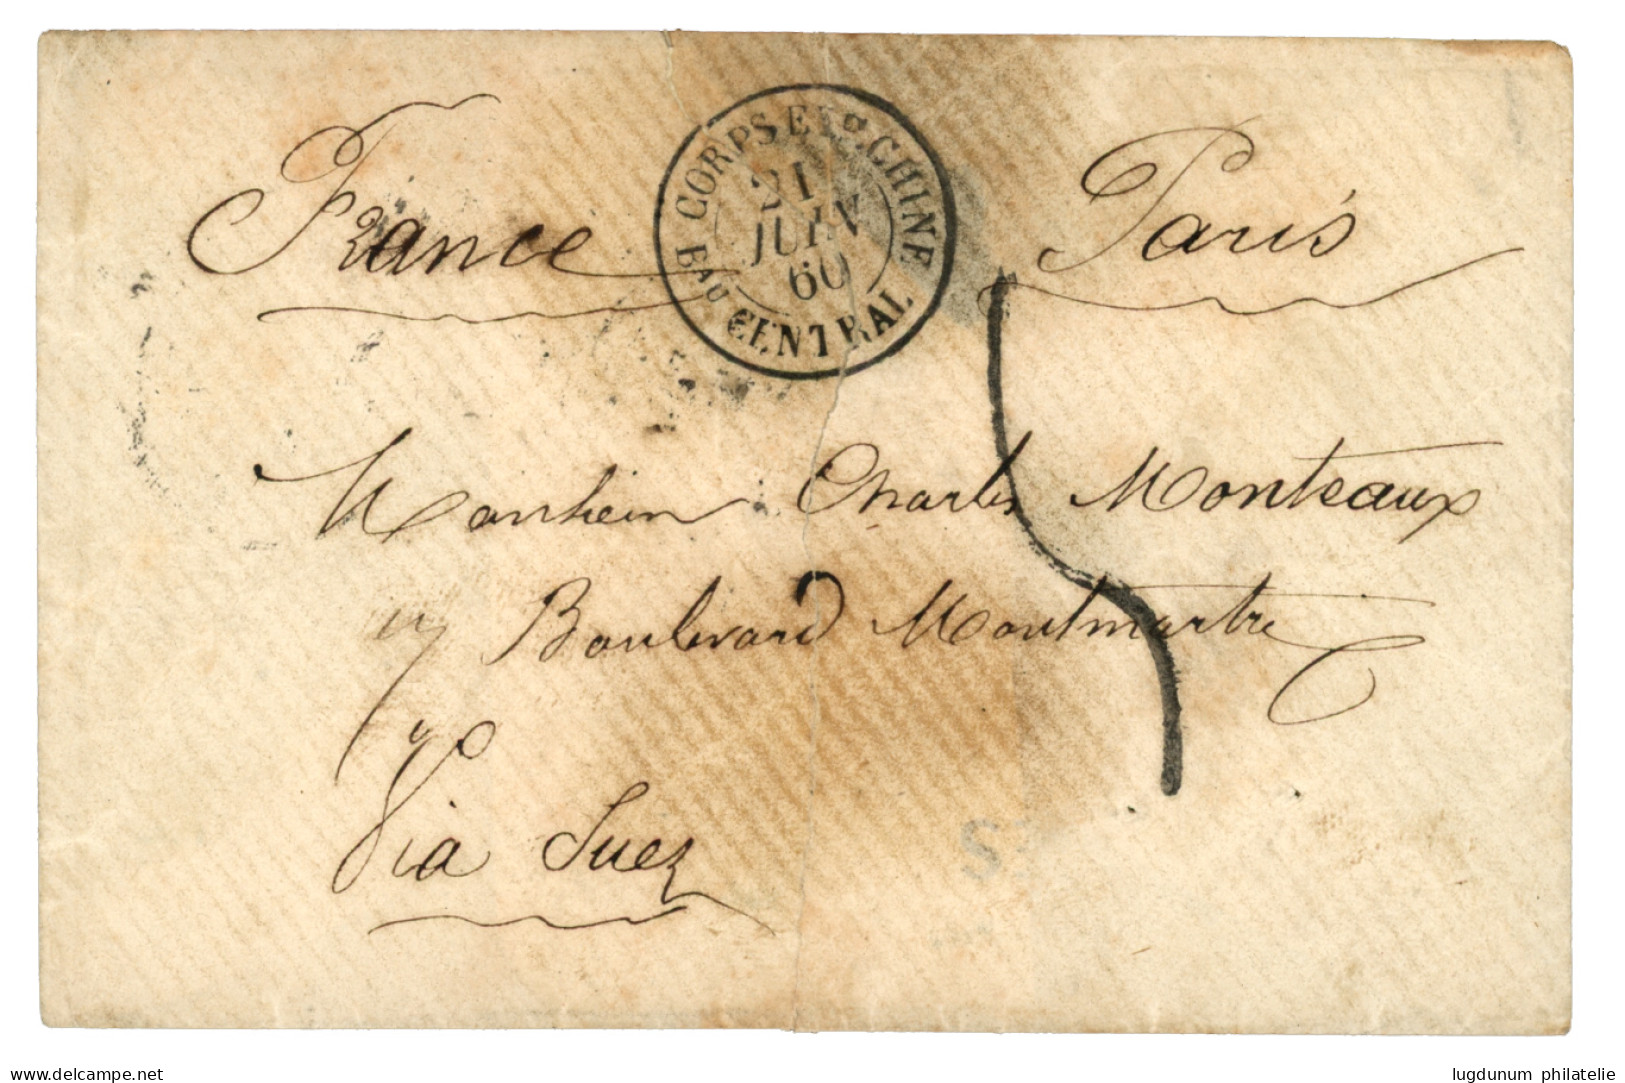 France Paris
CORPS EXP. CHINE
21
JUIN
60
BAU CENTRAL
Monsieur Charles Monteaux
Boulevard Montmartre
Via Suez
www.delcampe.net
lugdunum philatelie